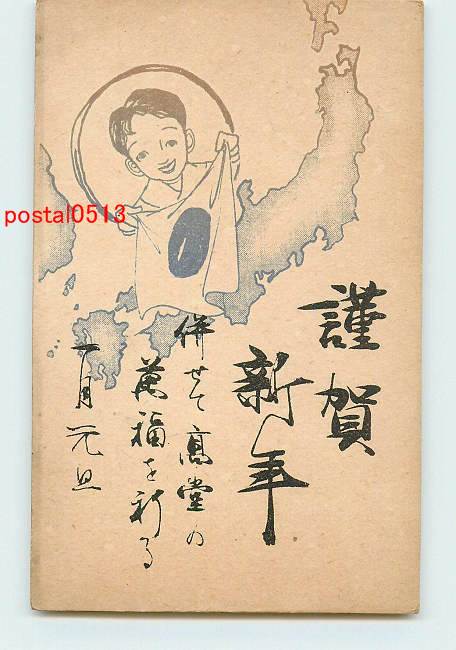 謹賀
新年
併せて高堂の
萬福を祈る
一月元旦
postal0513